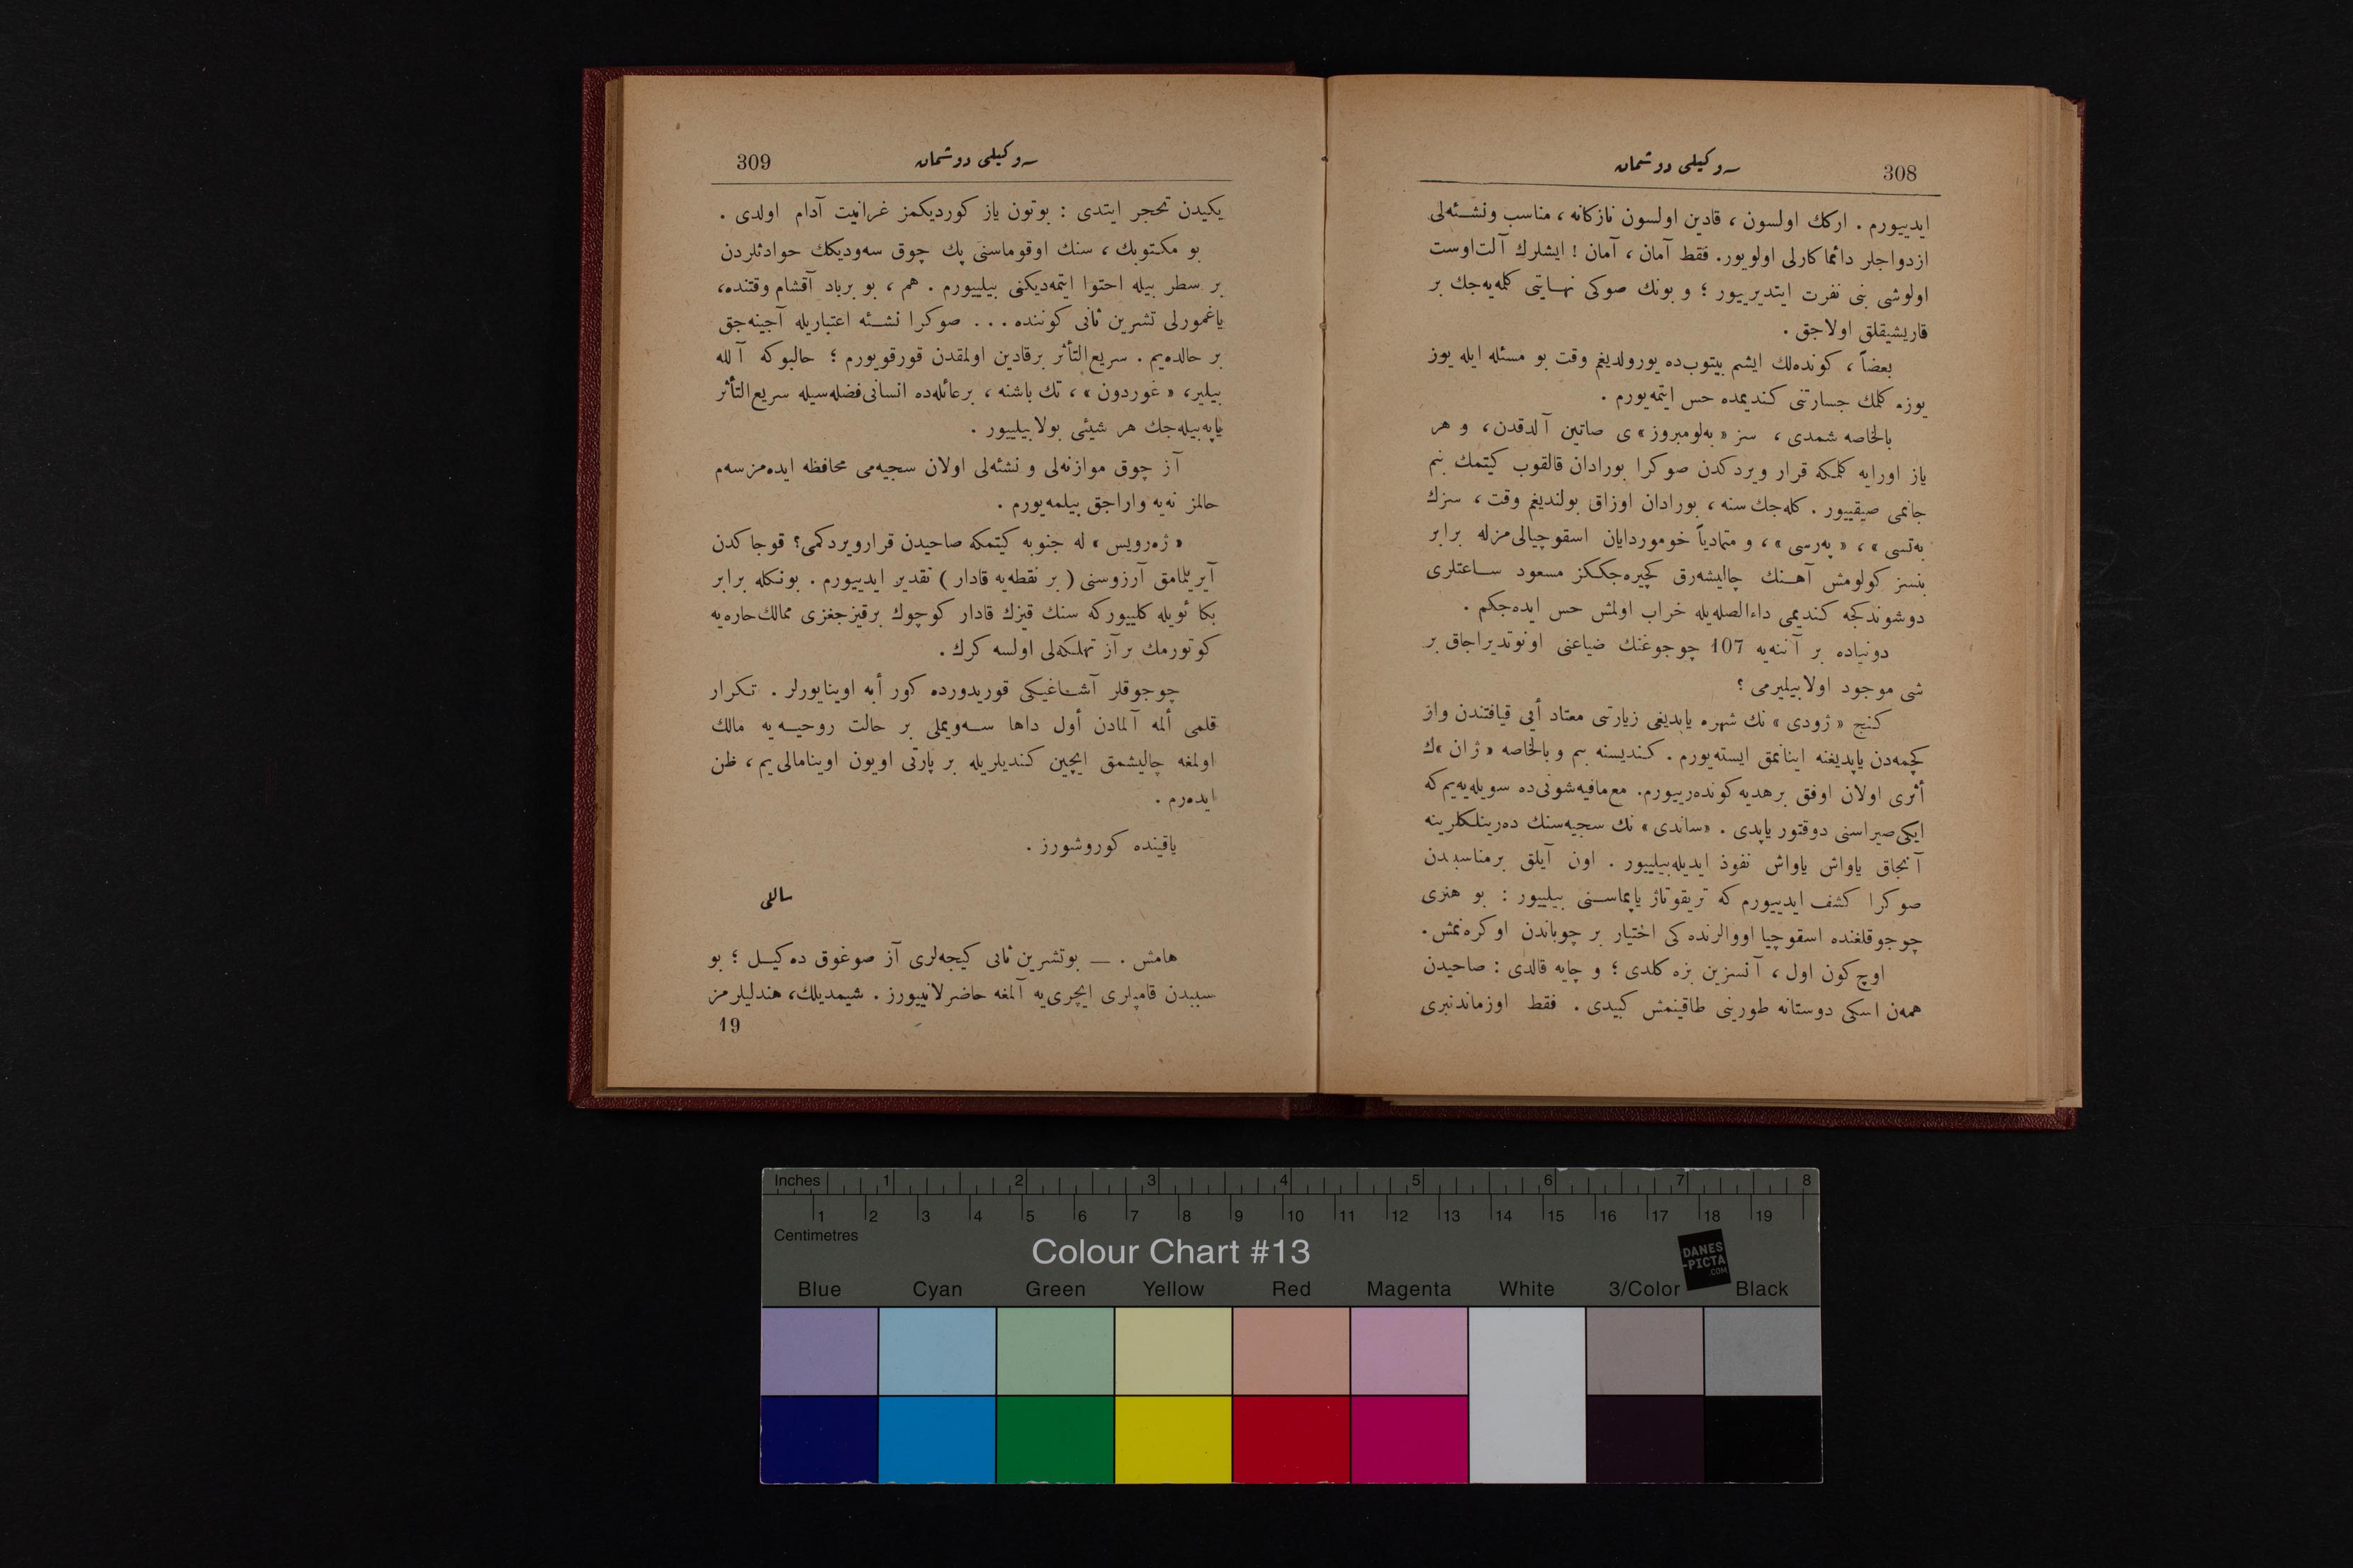 308
سوكيلى دوشمان
ايدييورم . اركك اولسون ، قادين اولسون نازكانه ، مناسب ونشئه‌لى
ازدواجلر دائما كارلى اولويور. فقط آمان ، آمان ! ايشلرك آلت‌اوست
اولوشى بنى نفرت ايتديرييور ؛ و بونك صوكى نهايتى كلمه‌يه‌جك بر
قاريشيقلق اولاجق .
بعضاً ، كونده‌لك ايشم بيتوب‌ده يورولديغم وقت بو مسئله ايله يوز
يوزه كلمك جسارتنى كنديمده حس ايتمه‌يورم .
بالخاصه شمدى ، سز « به‌لومبروز » ى صاتين آلدقدن ، و هر
ياز اورايه كلمكه قرار ويردكدن صوكرا بورادان قالقوب كيتمك بنم
جانمى صيقييور . كله‌جك سنه ، بورادان اوزاق بولنديغم وقت ، سزك
به‌تسى » ، « په‌رسى » ، و متمادياً خوموردايان اسقوچيالى‌مزله برابر
بنسز كولومش آهنك چاليشه‌رق كچيره‌جككز مسعود ساعتلرى
دوشوندكجه كنديمى داءالصله‌يله خراب اولمش حس ايده‌جكم .
دونياده بر آننه‌يه 107 چوجوغنك ضياعنى اونوتديراجاق بر
شى موجود اولابيليرمى ؟
كنج « ژودى » نك شهره ياپديغى زيارتى معتاد أيى قيافتندن واز
كچمه‌دن ياپديغنه اينانمق ايسته‌يورم . كنديسنه بم و بالخاصه « ژان »ك
أثرى اولان اوفق برهديه كونده‌رييورم. مع‌مافيه‌شونى‌ده سويله‌يه‌يم‌كه
ايكى‌صيراسنى دوقتور ياپدى . «ساندى» نك سجيه‌سنك ده‌رينلكلرينه
آنجاق ياواش ياواش نفوذ ايديله‌بيلييور . اون آيلق برمناسبدن
صوكرا كشف ايدييورم كه تريقوتاژ ياپماسنى بيلييور : بو هنرى
چوجوقلغنده اسقوچيا اووالرنده كى اختيار بر چوباندن اوكره‌نمش.
اوچ كون اول ، آنسزين بزه كلدى ؛ و چايه قالدى : صاحيدن
همه‌ن اسكى دوستانه طورينى طاقينمش كيبدى . فقط اوزماندنبرى
309
سوكيلى دوشمان
يكيدن تحجر ايتدى : بوتون ياز كورديكمز غرانيت آدام اولدى .
بو مكتوبك ، سنك اوقوماسنى پك چوق سه‌وديكك حوادثلردن
بر سطر بيله احتوا ايتمه‌ديكنى بيلييورم . هم ، بو برباد آقشام وقتنده،
ياغمورلى تشرين ثانى كوننده . . . صوكرا نشئه اعتباريله آجينه‌جق
بر حالده‌يم . سريع‌التأثر برقادين اولمقدن قورقويورم ؛ حالبوكه آلله
بيلير، « غوردون » ، تك باشنه ، برعائله‌ده انسانى‌فضله‌سيله سريع‌التأثر
ياپه‌بيله‌جك هر شيئى بولابيلييور .
آز چوق موازنه‌لى و نشئه‌لى اولان سجيه‌مى محافظه ايده‌مزسه‌م
حالمز نه‌يه واراجق بيلمه‌يورم .
« ژه‌رويس » له جنوبه كيتمكه صاحيدن قرارويردكمى؟ قوجا كدن
آيريلمامق آرزوسنى ( بر نقطه‌يه قادار ) تقدير ايدييورم . بونكله برابر
بكا ئويله كلييوركه سنك قيزك قادار كوچوك برقيزجغزى ممالك‌حاره‌يه
كوتورمك بر آز تهلكه‌لى اولسه كرك .
چوجوقلر آشاغيكى قوريدورده كور أبه اوينايورلر . تكرار
قلمى ألمه آلمادن أول داها سه‌ويملى بر حالت روحيه‌يه مالك
اولمغه چاليشمق ايچين كنديلريله بر پارتى اويون اوينامالى‌يم ، ظن
ايده‌رم .
ياقينده كوروشورز .
ساللى
هامش . — بوتشرين ثانى كيجه‌لرى آز صوغوق ده كيل ؛ بو
سببدن قامپلرى ايچرى‌يه آلمغه حاضرلانييورز . شيمديلك، هندليلرمز
19
Inches 1 2 3 4 5 6 7 8
1 2 3 4 5 6 7 8 9 10 11 12 13 14 15 16 17 18 19
Centimetres
Colour Chart #13
DANES
-PICTA
.COM
Blue Cyan Green Yellow Red Magenta White 3/Color Black